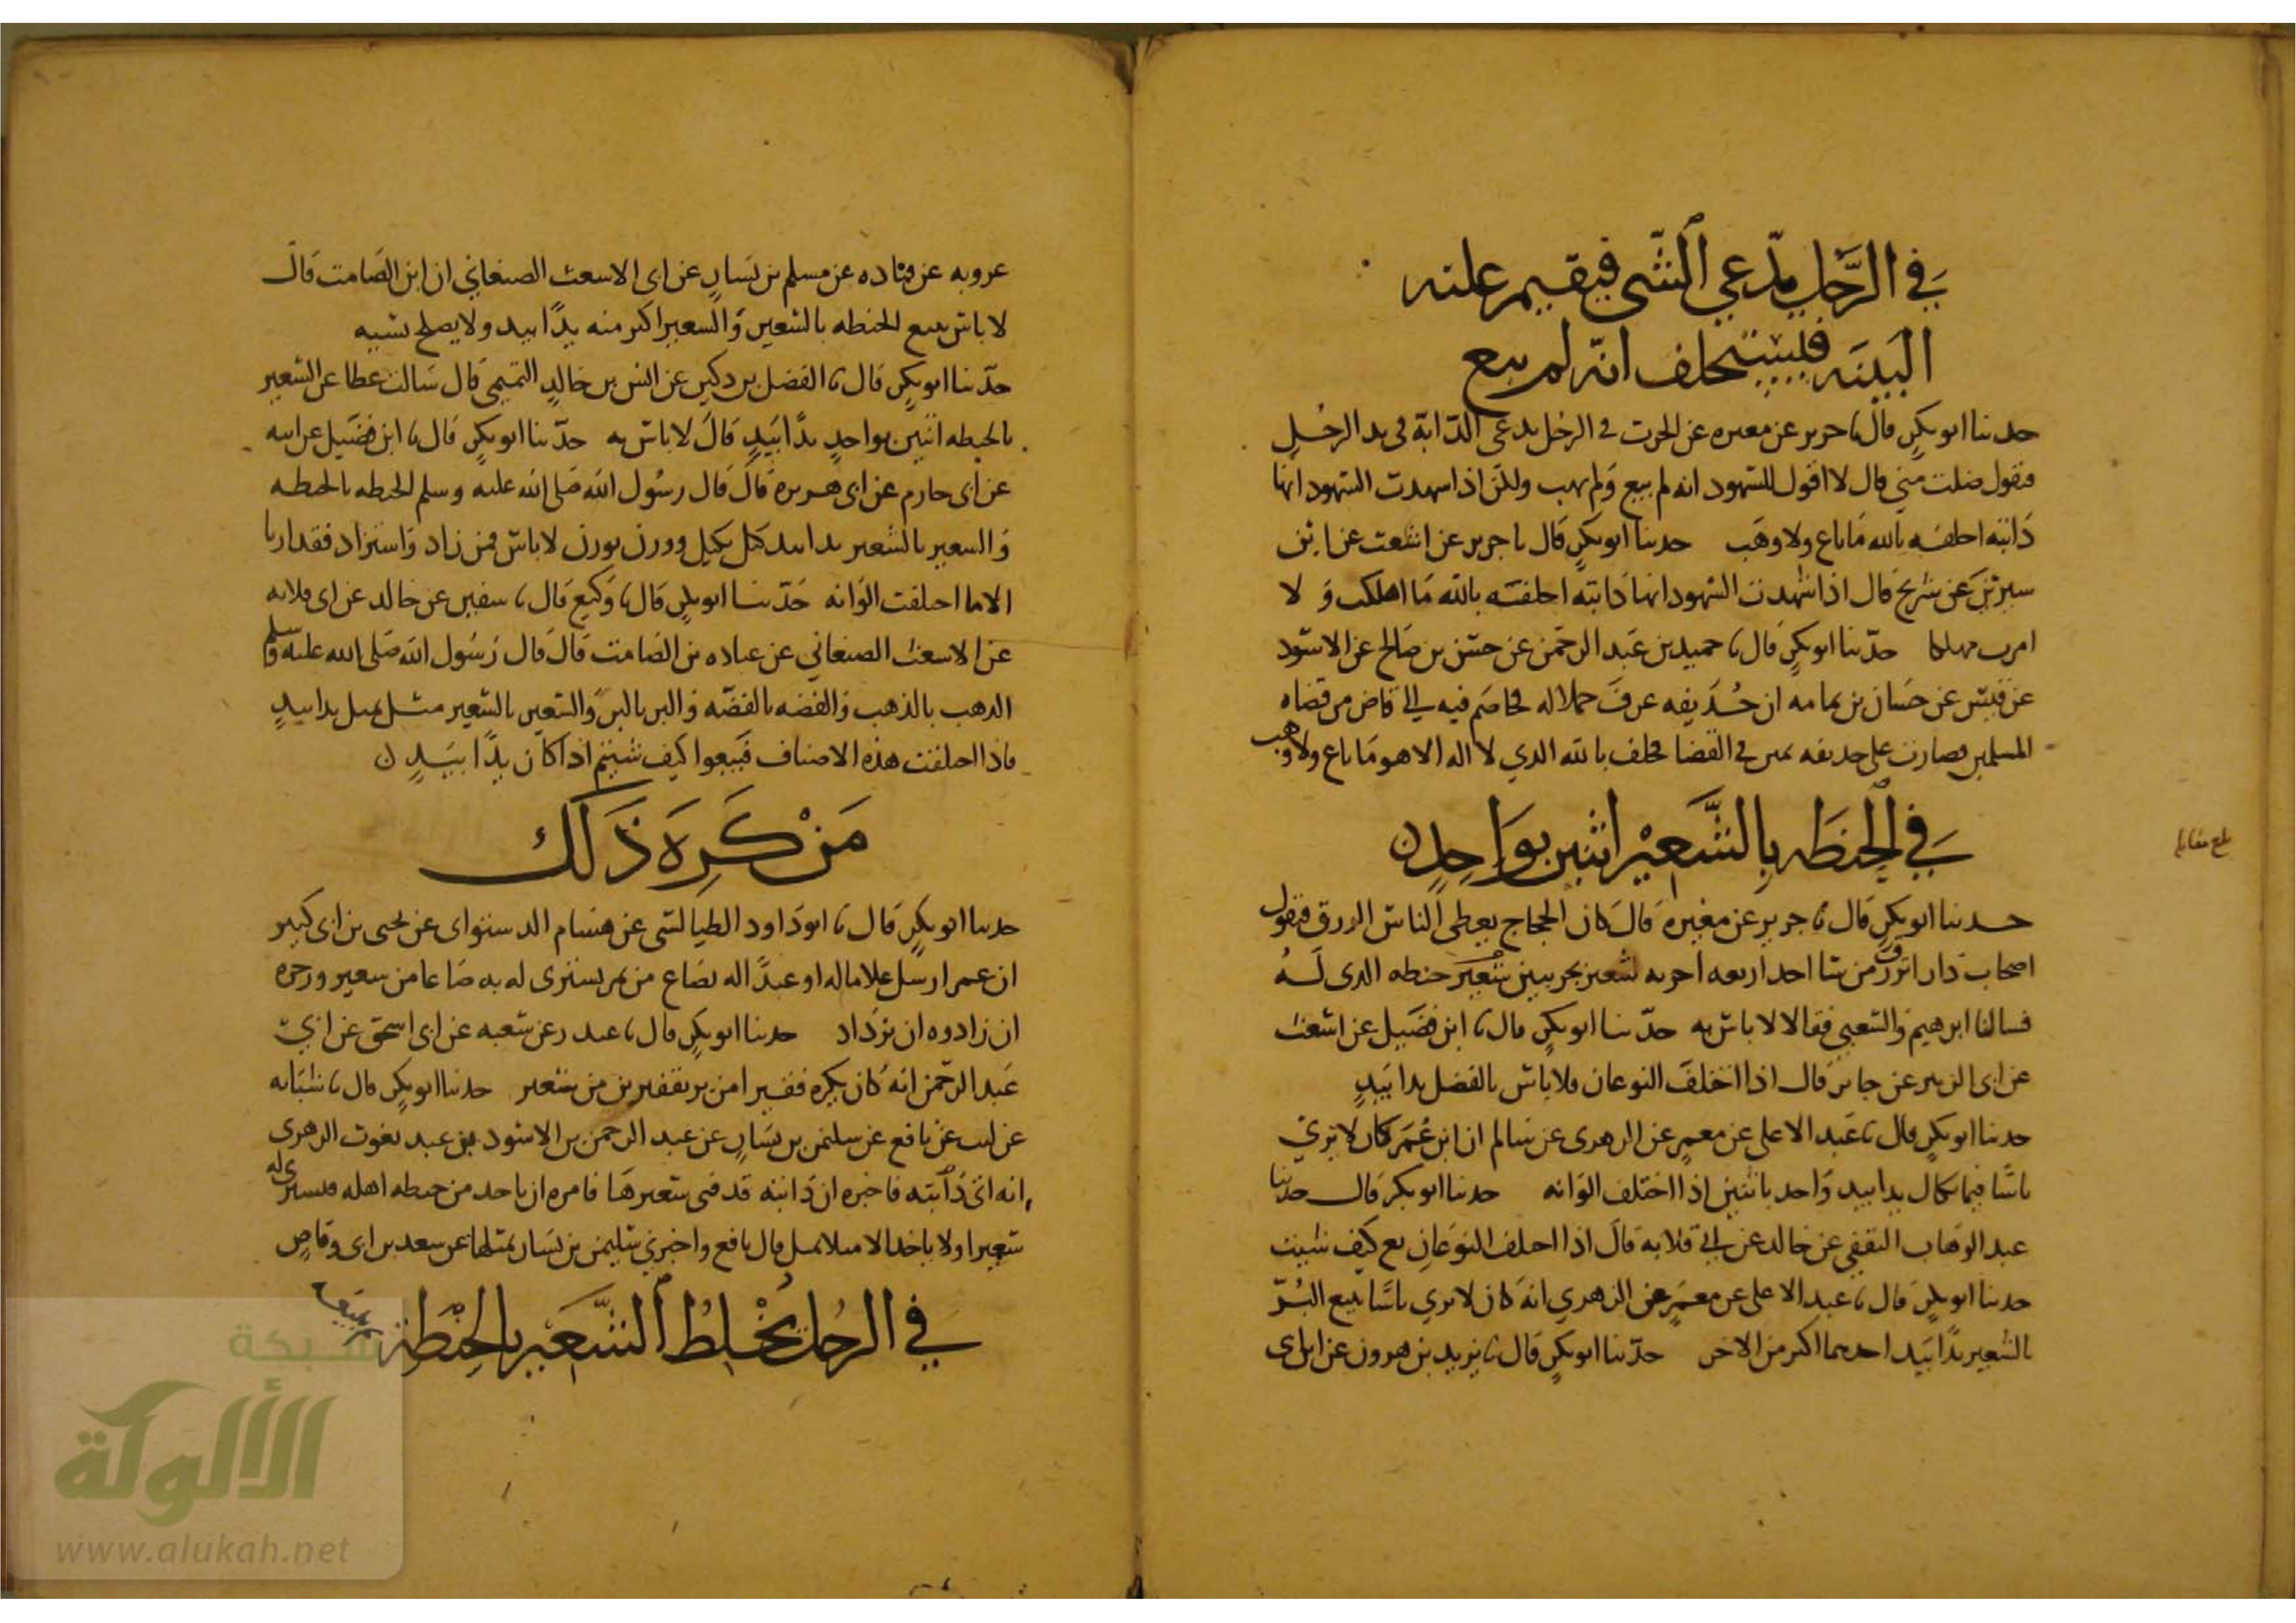 في الرجل يدعي الشي فيقيم عليه
البينه فيستحلف انه لم يبع
حدثنا ابو بكر قال نا جرير عن مغيره عن الحرث في الرجل يدعي الدابة في يد الرجل
فيقول ضلت مني قال لا اقول للشهود انه لم يبع ولم يهب ولكن اذا شهدت الشهود انها
دابته احلفه بالله ما باع ولا وهب حدثنا ابو بكر قال نا جرير عن اشعث عن ابن
سيرين عن شريح قال اذا شهدت الشهود انها دابته احلفته بالله ما اهلكت ولا
امرت مهلكا حدثنا ابو بكر قال نا حميد بن عبد الرحمن عن حسن بن صالح عن الاسود
عن قيس عن حسان بن ثمامه ان حذيفه عرف جملا له فخاصم فيه الى قاض من قضاه
المسلمين فصارت على حذيفه يمين في القضا فحلف بالله الذي لا اله الا هو ما باع ولا وهب
في الحنطه بالشعير اثنين بواحد ن
بلغ مقابله
حدثنا ابو بكر قال نا جرير عن مغيره قال كان الحجاج يعطي الناس الرزق فيقول
اصحاب دار الرزق من شا اخذ اربعه اجربه شعير بجريبين شعير حنطه الذي له
فسالنا ابرهيم والشعبي فقالا لا باس به حدثنا ابو بكر قال نا ابن فضيل عن اشعث
عن ابى الزبير عن جابر قال اذا اختلف النوعان فلا باس بالفضل يدا بيد
حدثنا ابو بكر قال نا عبد الاعلى عن معمر عن الزهرى عن سالم ان ابن عمر كان لا يرى
باسا فيما يكال يدا بيد واحد باثنين اذا اختلف الوانه حدثنا ابو بكر قال حدثنا
عبد الوهاب الثقفي عن خالد عن ابي قلابه قال اذا اختلف النوعان بع كيف شيت
حدثنا ابو بكر قال نا عبد الاعلى عن معمر عن الزهري انه كان لا يرى باسا ببيع البر
بالشعير يدا بيد احدهما اكثر من الاخر حدثنا ابو بكر قال نا يزيد بن هرون عن ابن ابى
عروبه عن قتاده عن مسلم بن يسار عن ابى الاشعث الصنعاني ان ابن الصامت قال
لا باس ببيع الحنطه بالشعير والشعير اكثر منه يدا بيد ولا يصلح نسيه
حدثنا ابو بكر قال نا الفضل بن دكين عن انس بن خالد التميمي قال سالت عطا عن الشعير
بالحنطه اثنين بواحد يدا بيد قال لا باس به حدثنا ابو بكر قال نا ابن فضيل عن ابيه
عن ابى حازم عن ابى هريره قال قال رسول الله صلى الله عليه وسلم الحنطه بالحنطه
والشعير بالشعير يدا بيد كيل بكيل ووزن بوزن لا باس فمن زاد واستزاد فقد اربا
الا ما اختلفت الوانه حدثنا ابو بكر قال نا وكيع قال نا سفين عن خالد عن ابى قلابه
عن الاشعث الصنعاني عن عباده بن الصامت قال قال رسول الله صلى الله عليه وسلم
الذهب بالذهب والفضه بالفضه والبر بالبر والشعير بالشعير مثل بمثل يدا بيد
فاذا اختلفت هذه الاصناف فبيعوا كيف شيتم اذا كان يدا بيد ن
من كره ذلك
حدثنا ابو بكر قال نا ابو داود الطيالسي عن هشام الدستواى عن يحيى بن ابى كثير
ان عمر ارسل غلاما له او عبدا له بصاع من بر يشترى له به صاعا من شعير وزجره
ان زادوه ان يزداد حدثنا ابو بكر قال نا غندر عن شعبه عن ابى اسحق عن ابي
عبد الرحمن انه كان يكره قفيزا من بر بقفيزين من شعير حدثنا ابو بكر قال نا شبابه
عن ليث عن نافع عن سليمن بن يسار عن عبد الرحمن بن الاسود بن عبد يغوث الزهرى
انه اتى دابته فاخبره ان دابته قد فنى شعيرها فامره ان ياخذ من حنطه اهله فيشترى له
شعيرا ولا ياخذ الا مثلا بمثل قال نافع واخبرني سليمن بن يسار بمثلها عن سعد بن ابى وقاص
في الرجل يخلط الشعير بالحنطة ثم يبيعه
شبكة
الألوكة
www.alukah.net